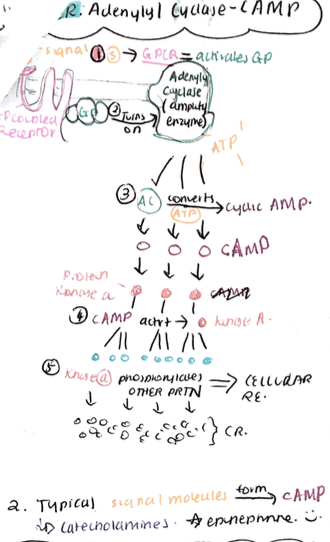 R. Adenylyl Cyclase-CAMP
signal 1 S → GPCR = activates GP
G P coupled
Receptor
GP
② Turns
on
Adenylyl
Cyclase
(amplify
enzyme)
ATP
③ AC converts → cyclic AMP.
ATP
CAMP
Protein
kinase a
CAMP
④ CAMP activt → kinase A.
⑤ kinase (a) phosphorylates ⇒ CELLULAR
OTHER PRTN RE.
CR.
2. Typical signal molecules form → CAMP
↳ catecholamines. ☆ epinephrine. :)